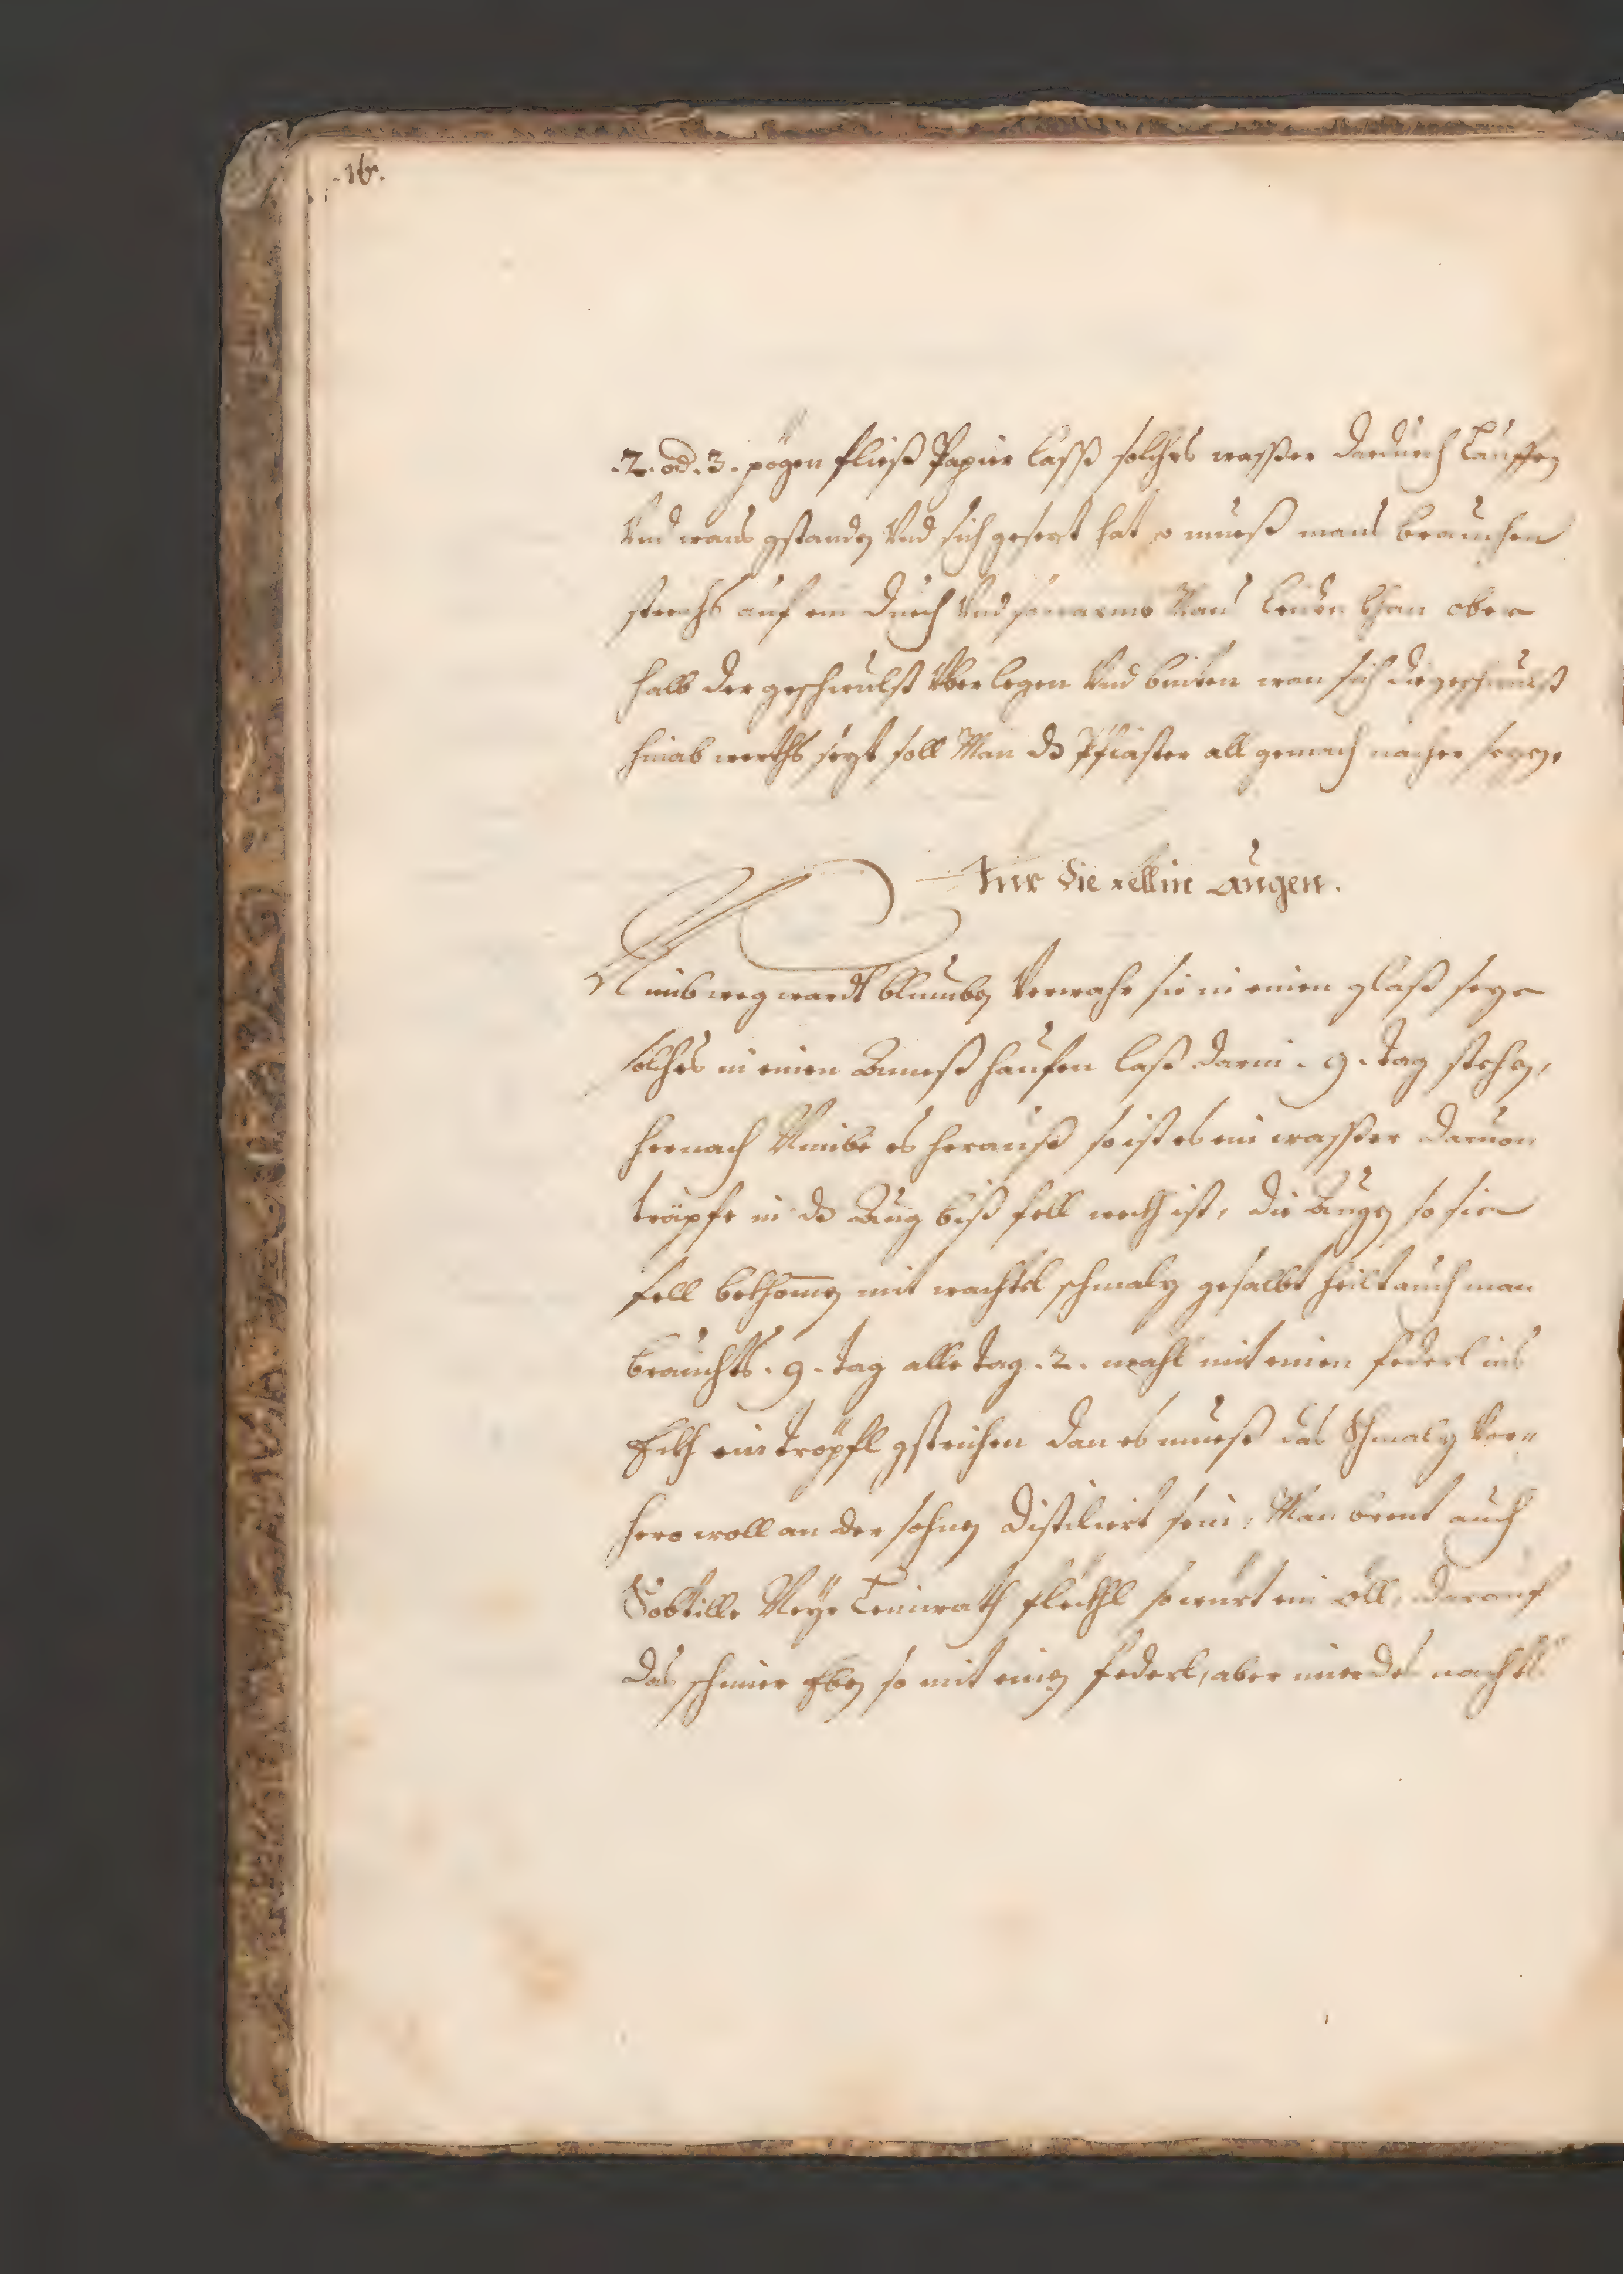 .16.
.2. od .3. pögen fließ Papier lasß solches wasßer dardurch lauffen
Vnd wans gstanden Vnd sich gesezt hat so mueß mans brauchen
streichs auf ein duech Vnd so warmb Mans leiden khan ober
halb der geschwulst Vber legen Vnd binten wan sich die geschwulst
hinab werths sezt soll Man dz Pflaster all gemach nacher sezen.
Fur die Fell in Augen.
Nimb weg wardt bluemben Verwahr sie in einen glaß seze
solches in einen Ameß hauffen laß darin .9. tag stehen,
hernach Nimbe es herauß so ist es ein wasßer daruon
träpfe in dz Aug biß fell wekh ist, die Augen so sie
fell bekhomen mit wachtel schmalz gesalbt heilt auch man
brauchts .9. tag alle tag .2. mahl mit einen federl ins
Ekh ein tröpfl gstrichen dan es mueß das Schmalz Vor„
hero woll an der sohnen Distiliert sein, Man brent auch
Subtille Neye Leinwath flekhl so wurt ein öll, darauß
das schmier Eben so mit einen federl, aber nur des nachts